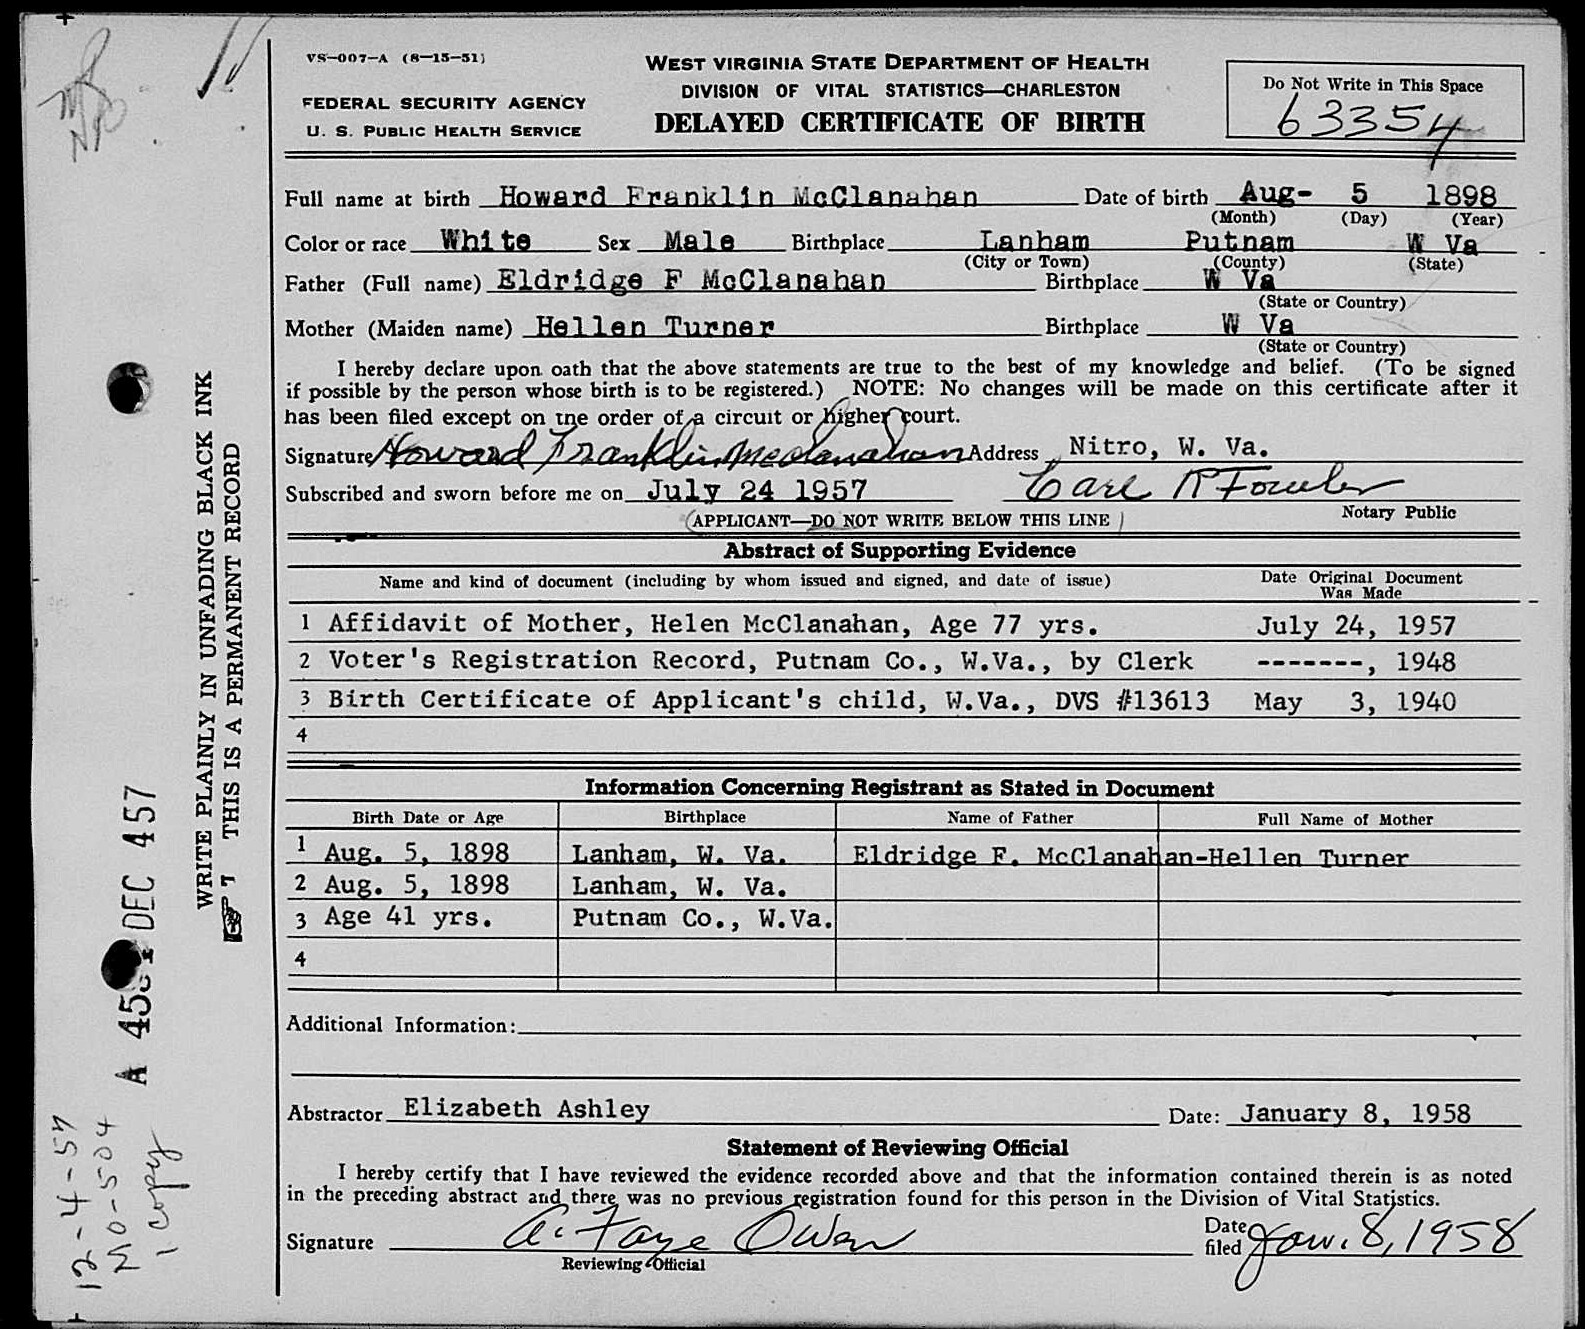 VS-007-A (8-15-51)
FEDERAL SECURITY AGENCY
U. S. PUBLIC HEALTH SERVICE
WEST VIRGINIA STATE DEPARTMENT OF HEALTH
DIVISION OF VITAL STATISTICS—CHARLESTON
DELAYED CERTIFICATE OF BIRTH
Do Not Write in This Space
63354
Full name at birth Howard Franklin McClanahan Date of birth Aug- 5 1898
(Month) (Day) (Year)
Color or race White Sex Male Birthplace Lanham Putnam W Va
(City or Town) (County) (State)
Father (Full name) Eldridge F McClanahan Birthplace W Va
(State or Country)
Mother (Maiden name) Hellen Turner Birthplace W Va
(State or Country)
I hereby declare upon oath that the above statements are true to the best of my knowledge and belief. (To be signed
if possible by the person whose birth is to be registered.) NOTE: No changes will be made on this certificate after it
has been filed except on the order of a circuit or higher court.
Signature Howard Franklin McClanahan Address Nitro, W. Va.
Subscribed and sworn before me on July 24 1957 Carl R Fowler
Notary Public
(APPLICANT—DO NOT WRITE BELOW THIS LINE)
Abstract of Supporting Evidence
Name and kind of document (including by whom issued and signed, and date of issue) Date Original Document
Was Made
1 Affidavit of Mother, Helen McClanahan, Age 77 yrs. July 24, 1957
2 Voter's Registration Record, Putnam Co., W.Va., by Clerk -------, 1948
3 Birth Certificate of Applicant's child, W.Va., DVS #13613 May 3, 1940
4
Information Concerning Registrant as Stated in Document
Birth Date or Age Birthplace Name of Father Full Name of Mother
1 Aug. 5, 1898 Lanham, W. Va. Eldridge F. McClanahan-Hellen Turner
2 Aug. 5, 1898 Lanham, W. Va.
3 Age 41 yrs. Putnam Co., W.Va.
4
Additional Information:
Abstractor Elizabeth Ashley Date: January 8, 1958
Statement of Reviewing Official
I hereby certify that I have reviewed the evidence recorded above and that the information contained therein is as noted
in the preceding abstract and there was no previous registration found for this person in the Division of Vital Statistics.
Signature A. Faye Owen Date filed Jan. 8, 1958
Reviewing Official
WRITE PLAINLY IN UNFADING BLACK INK
THIS IS A PERMANENT RECORD
DEC 457
12-4-57
MO-504
1 copy